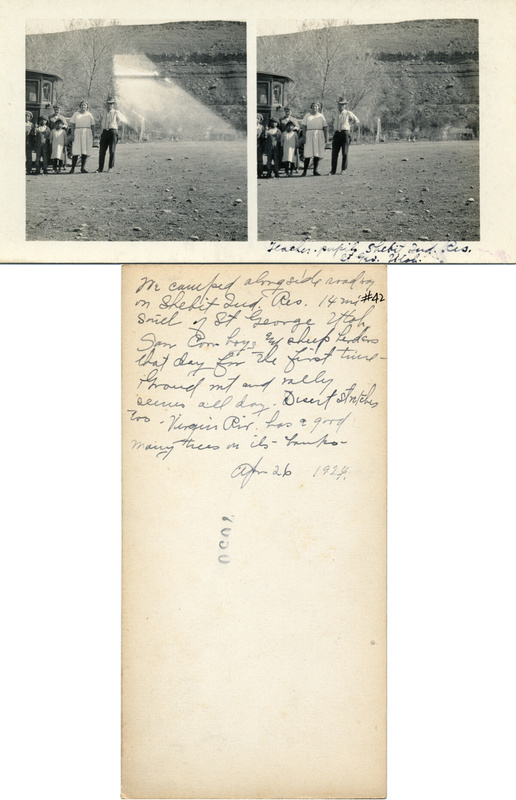 Teacher - pupils Shebit Ind. Res.
St Geo. Utah.
We camped alongside roadway
on Shebit Ind. Res. 14 mi #42
South of St George Utah
Saw Cow boys and sheep herders
that day for the first time -
Through mt and vally
scenes all day. Desert stretches
too - Virgin Riv. has a good
many trees on its - banks -
Apr 26 1924.
7050